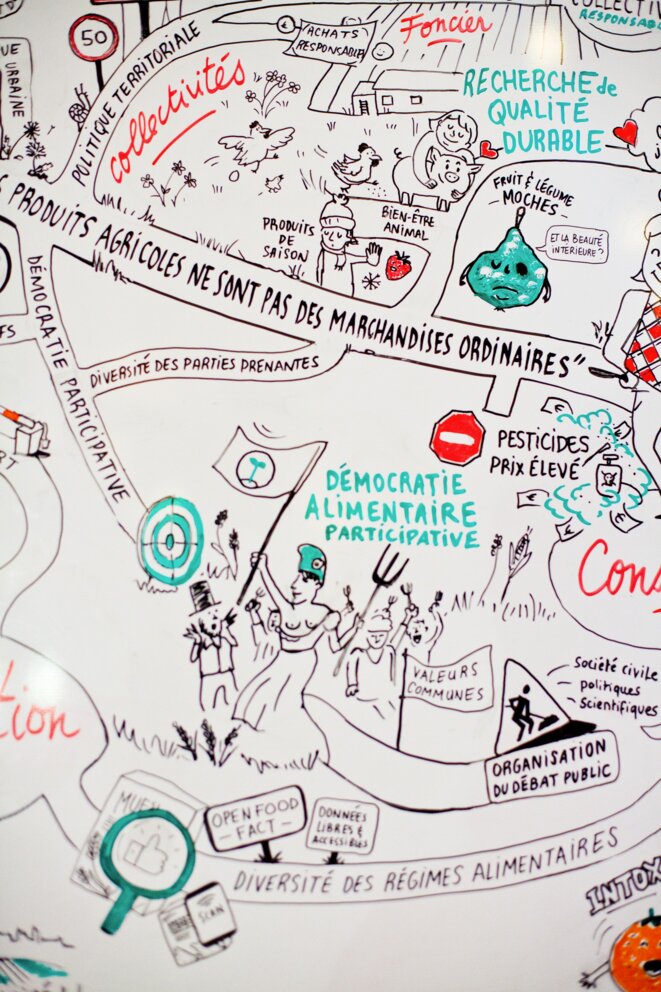 50
POLITIQUE TERRITORIALE
URBAINE
collectivités
€
ACHATS
RESPONSABLES
Foncier
RESPONSABLE
RECHERCHE de
QUALITÉ
DURABLE
BIEN-ÊTRE
ANIMAL
PRODUITS
DE
SAISON
FRUIT & LÉGUME
MOCHES
ET LA BEAUTÉ
INTÉRIEURE ?
PRODUITS AGRICOLES NE SONT PAS DES MARCHANDISES ORDINAIRES"
DÉMOCRATIE PARTICIPATIVE
DIVERSITÉ DES PARTIES PRENANTES
PESTICIDES
PRIX ÉLEVÉ
DÉMOCRATIE
ALIMENTAIRE
PARTICIPATIVE
VALEURS
COMMUNES
Société civile
politiques
Scientifiques
ORGANISATION
DU DÉBAT PUBLIC
OPEN FOOD
- FACT -
DONNÉES
LIBRES &
ACCESSIBLES
SCAN
DIVERSITÉ DES RÉGIMES ALIMENTAIRES
INTOX